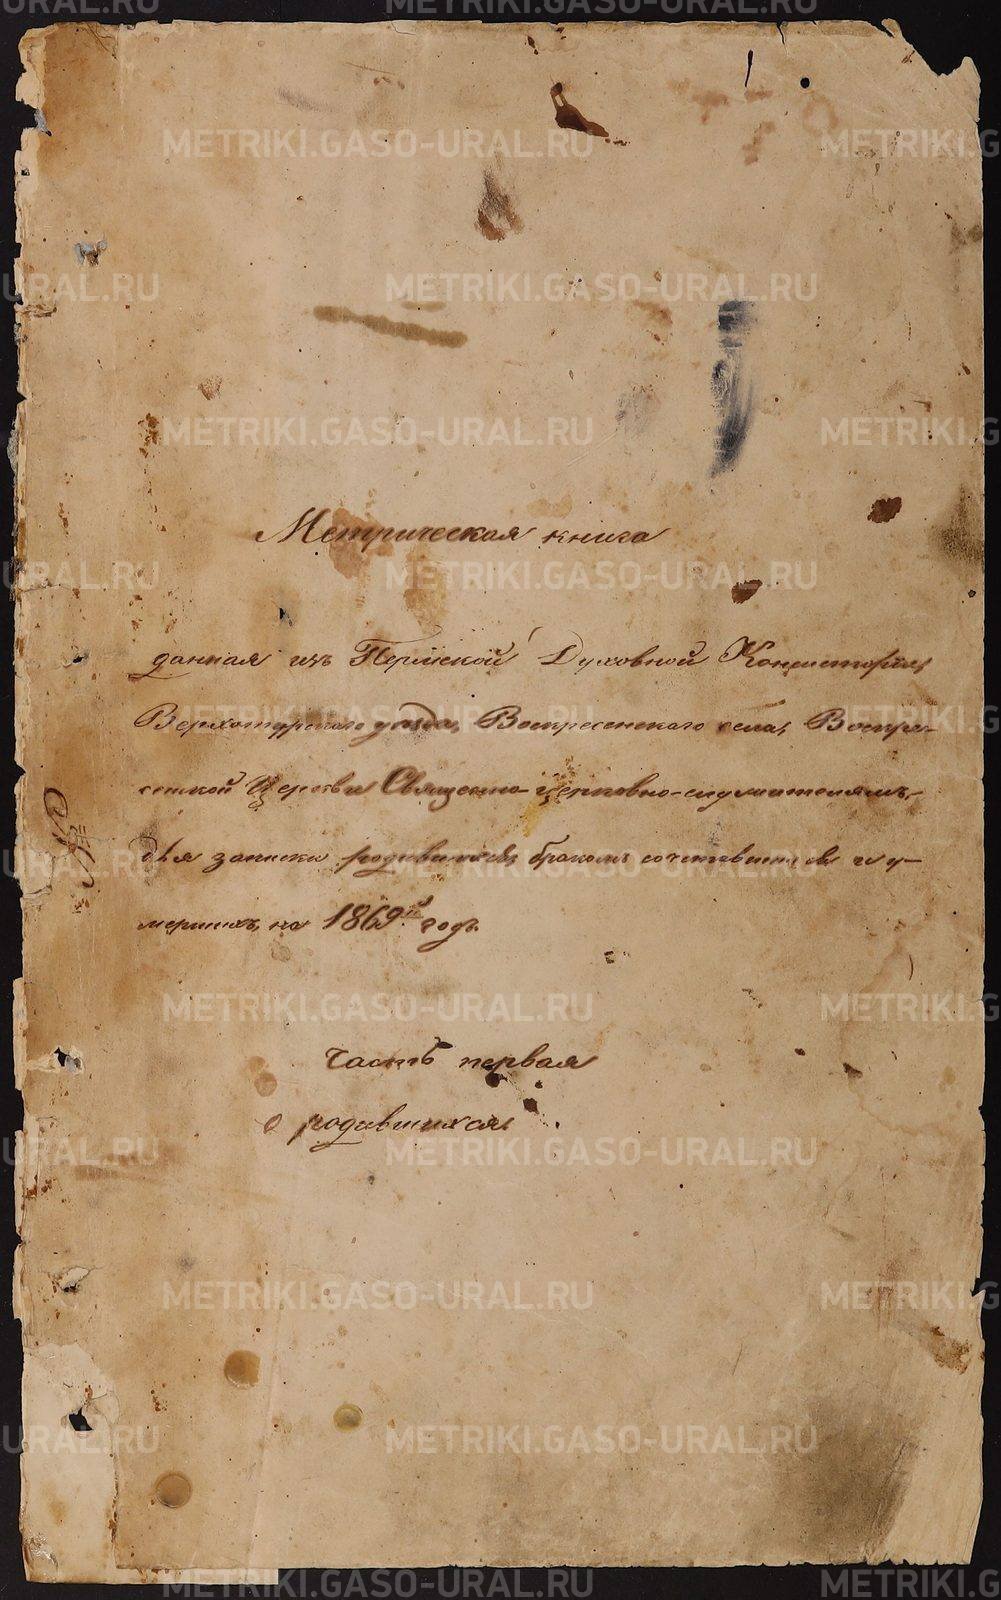 Метрическая книга
данная изъ Пермской Духовной Консисторіи,
Верхотурскаго уѣзда, Воскресенскаго села, Воскре-
сенской Церкви Священно-церковно-служителямъ,
для записки родившихся, бракомъ сочетавшихся и у-
мершихъ, на 1869й годъ.
Часть первая
о родившихся.
METRIKI.GASO-URAL.RU